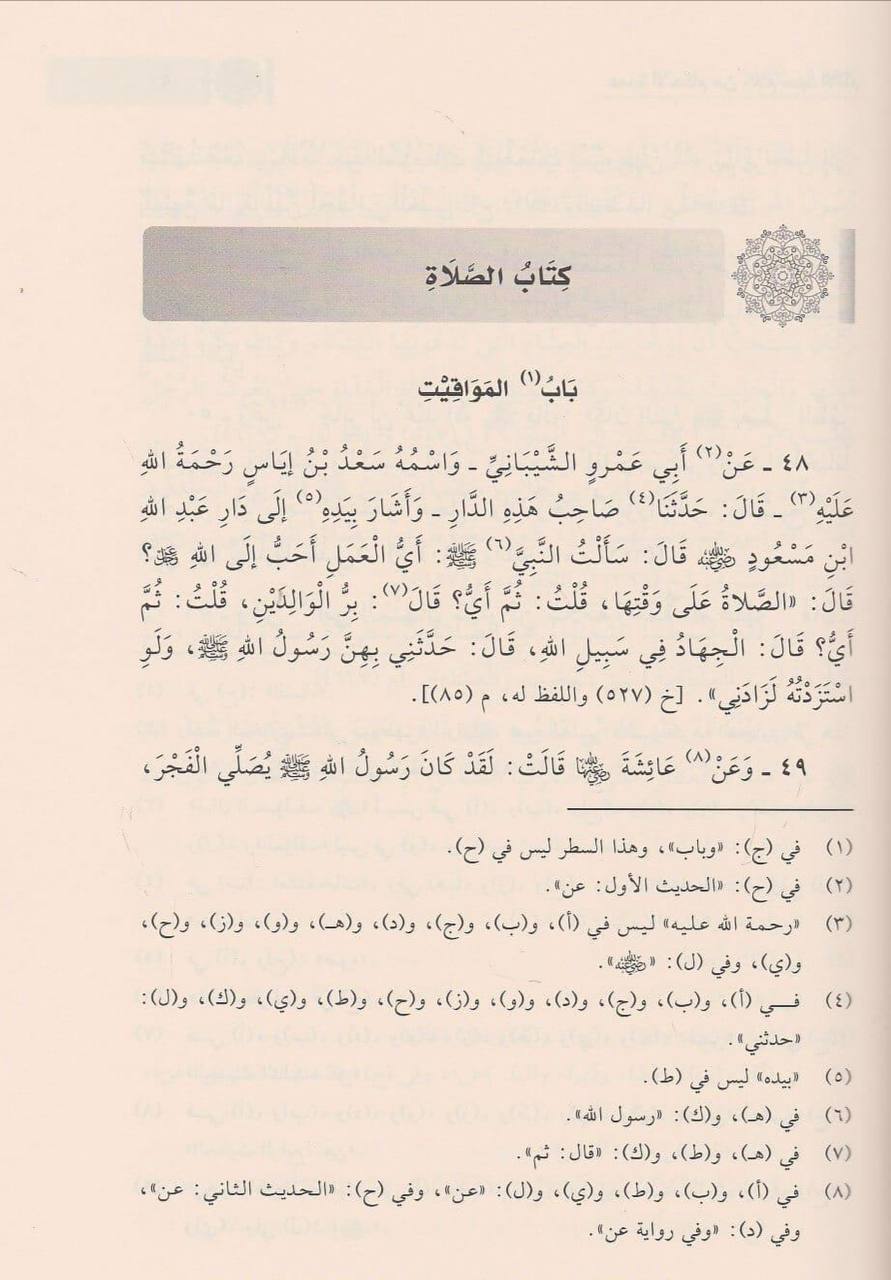 كِتَابُ الصَّلَاةِ
بَابُ(١) المَوَاقِيْتِ
٤٨ ـ عَنْ(٢) أَبِي عَمْرٍو الشَّيْبَانِيِّ ـ وَاسْمُهُ سَعْدُ بْنُ إِيَاسٍ رَحْمَةُ اللهِ
عَلَيْهِ(٣) ـ قَالَ: حَدَّثَنَا(٤) صَاحِبُ هَذِهِ الدَّارِ ـ وَأَشَارَ بِيَدِهِ(٥) إِلَى دَارِ عَبْدِ اللهِ
ابْنِ مَسْعُودٍ رضي الله عنه قَالَ: سَأَلْتُ النَّبِيَّ(٦) ﷺ: أَيُّ الْعَمَلِ أَحَبُّ إِلَى اللهِ عز وجل؟
قَالَ: «الصَّلَاةُ عَلَى وَقْتِهَا، قُلْتُ: ثُمَّ أَيُّ؟ قَالَ(٧): بِرُّ الْوَالِدَيْنِ، قُلْتُ: ثُمَّ
أَيُّ؟ قَالَ: الْجِهَادُ فِي سَبِيلِ اللهِ، قَالَ: حَدَّثَنِي بِهِنَّ رَسُولُ اللهِ ﷺ، وَلَوِ
اسْتَزَدْتُهُ لَزَادَنِي». [خ (٥٢٧) واللفظ له، م (٨٥)].
٤٩ ـ وَعَنْ(٨) عَائِشَةَ رضي الله عنها قَالَتْ: لَقَدْ كَانَ رَسُولُ اللهِ ﷺ يُصَلِّي الْفَجْرَ،
(١) في (ج): «وباب»، وهذا السطر ليس في (ح).
(٢) في (ح): «الحديث الأول: عن».
(٣) «رحمة الله عليه» ليس في (أ)، و(ب)، و(ج)، و(د)، و(هـ)، و(و)، و(ز)، و(ح)،
و(ي)، وفي (ل): «رضي الله عنه».
(٤) فـي (أ)، و(ب)، و(ج)، و(د)، و(و)، و(ز)، و(ح)، و(ط)، و(ي)، و(ك)، و(ل):
«حدثني».
(٥) «بيده» ليس في (ط).
(٦) في (هـ)، و(ك): «رسول الله».
(٧) في (هـ)، و(ط)، و(ك): «قال: ثم».
(٨) في (أ)، و(ب)، و(ط)، و(ي)، و(ل): «عن»، وفي (ح): «الحديث الثاني: عن»،
وفي (د): «وفي رواية عن».